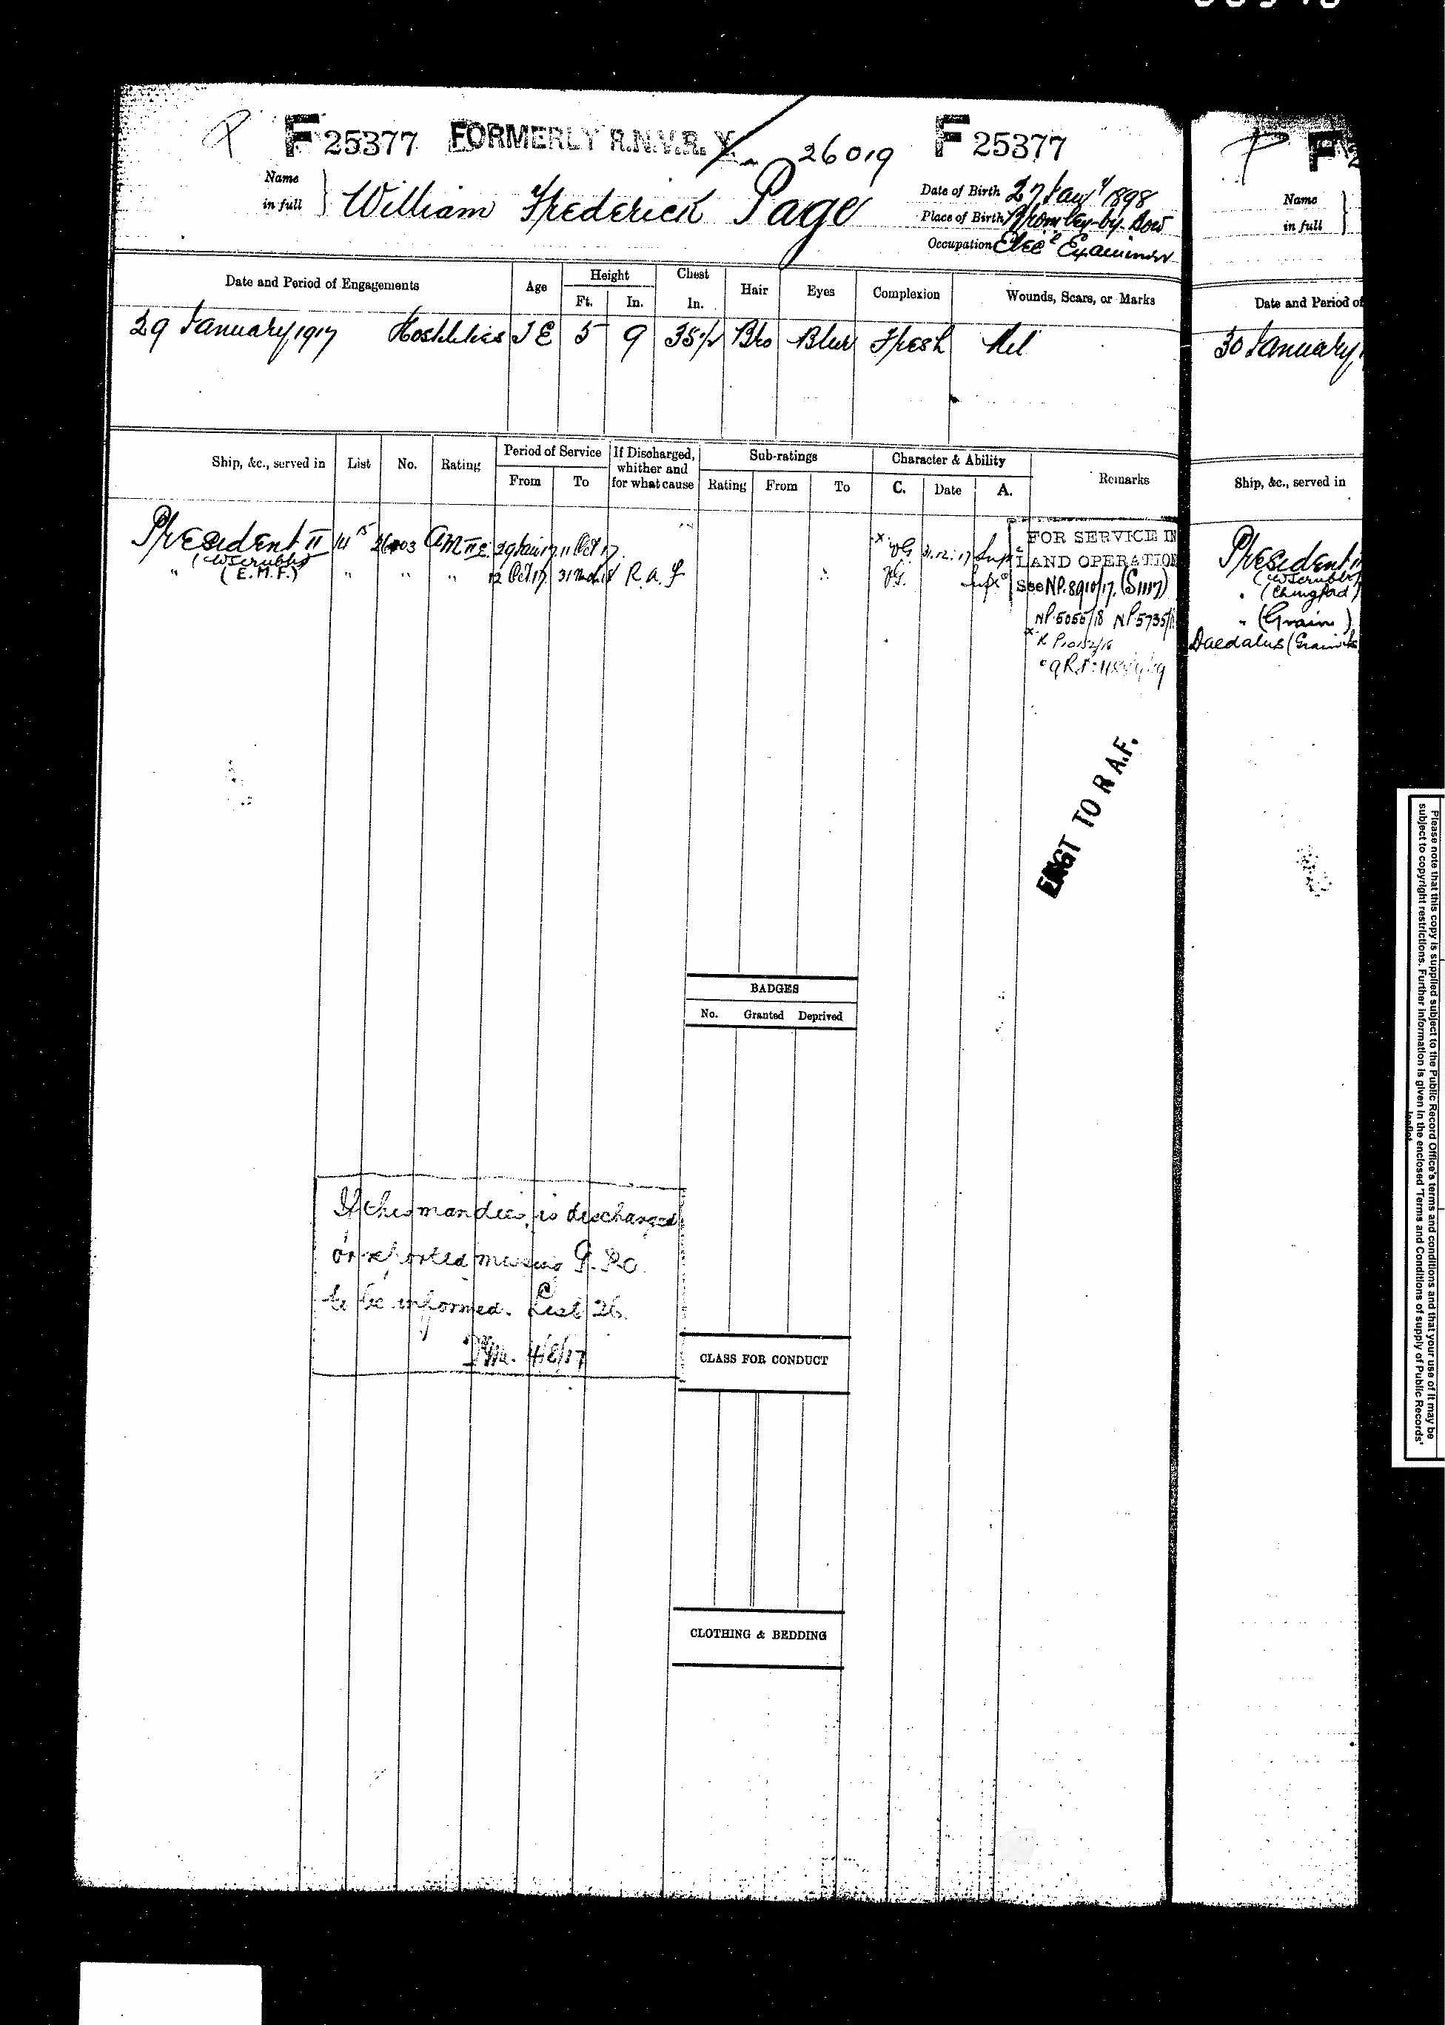 F 25377 FORMERLY R.N.V.R. 26019 F 25377
Name in full } William Frederick Page
Date of Birth 27 Jany 1898
Place of Birth Bromley-by-Bow
Occupation Elecl Examiner
Date and Period of Engagements Age Height Ft. In. Chest In. Hair Eyes Complexion Wounds, Scars, or Marks
29 January 1917 Hostilities 5 9 35½ Bro Blue Fresh Nil
Ship, &c., served in List No. Rating Period of Service From To If Discharged, whither and for what cause Sub-ratings Rating From To Character & Ability C. Date A. Remarks
President II 15 AM II E 29 Jan 17 11 Oct 17 x VG 31.12.17 Supr
(W Scrubbs)
" (E.M.F.) " " " 12 Oct 17 31 Mch 18 R a f VG Supr
FOR SERVICE IN
LAND OPERATION
See NP.8910/17. (S1117)
NP.5055/18 NP.5735/
TO R.A.F.
BADGES
No. Granted Deprived
If this man dies, is discharged
or reported missing
to be informed. List 26.
4/8/17
CLASS FOR CONDUCT
CLOTHING & BEDDING
F
Name in full }
Date and Period of
30 January
Ship, &c., served in
President II
(W Scrubbs)
" (Chingford)
" (Grain)
Daedalus (Grain
Please note that this copy is supplied subject to the Public Record Office's terms and conditions and that your use of it may be
subject to copyright restrictions. Further information is given in the enclosed 'Terms and Conditions of supply of Public Records'
leaflet